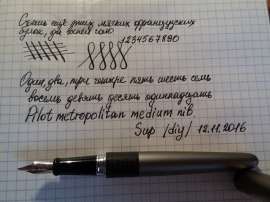 Съешь ещё этих мягких французских
булок, да выпей чаю
1234567890
Один, два, три, четыре пять шесть семь
восемь девять десять одиннадцать
Pilot metropolitan medium nib
Sup /diy/ 12.11.2016